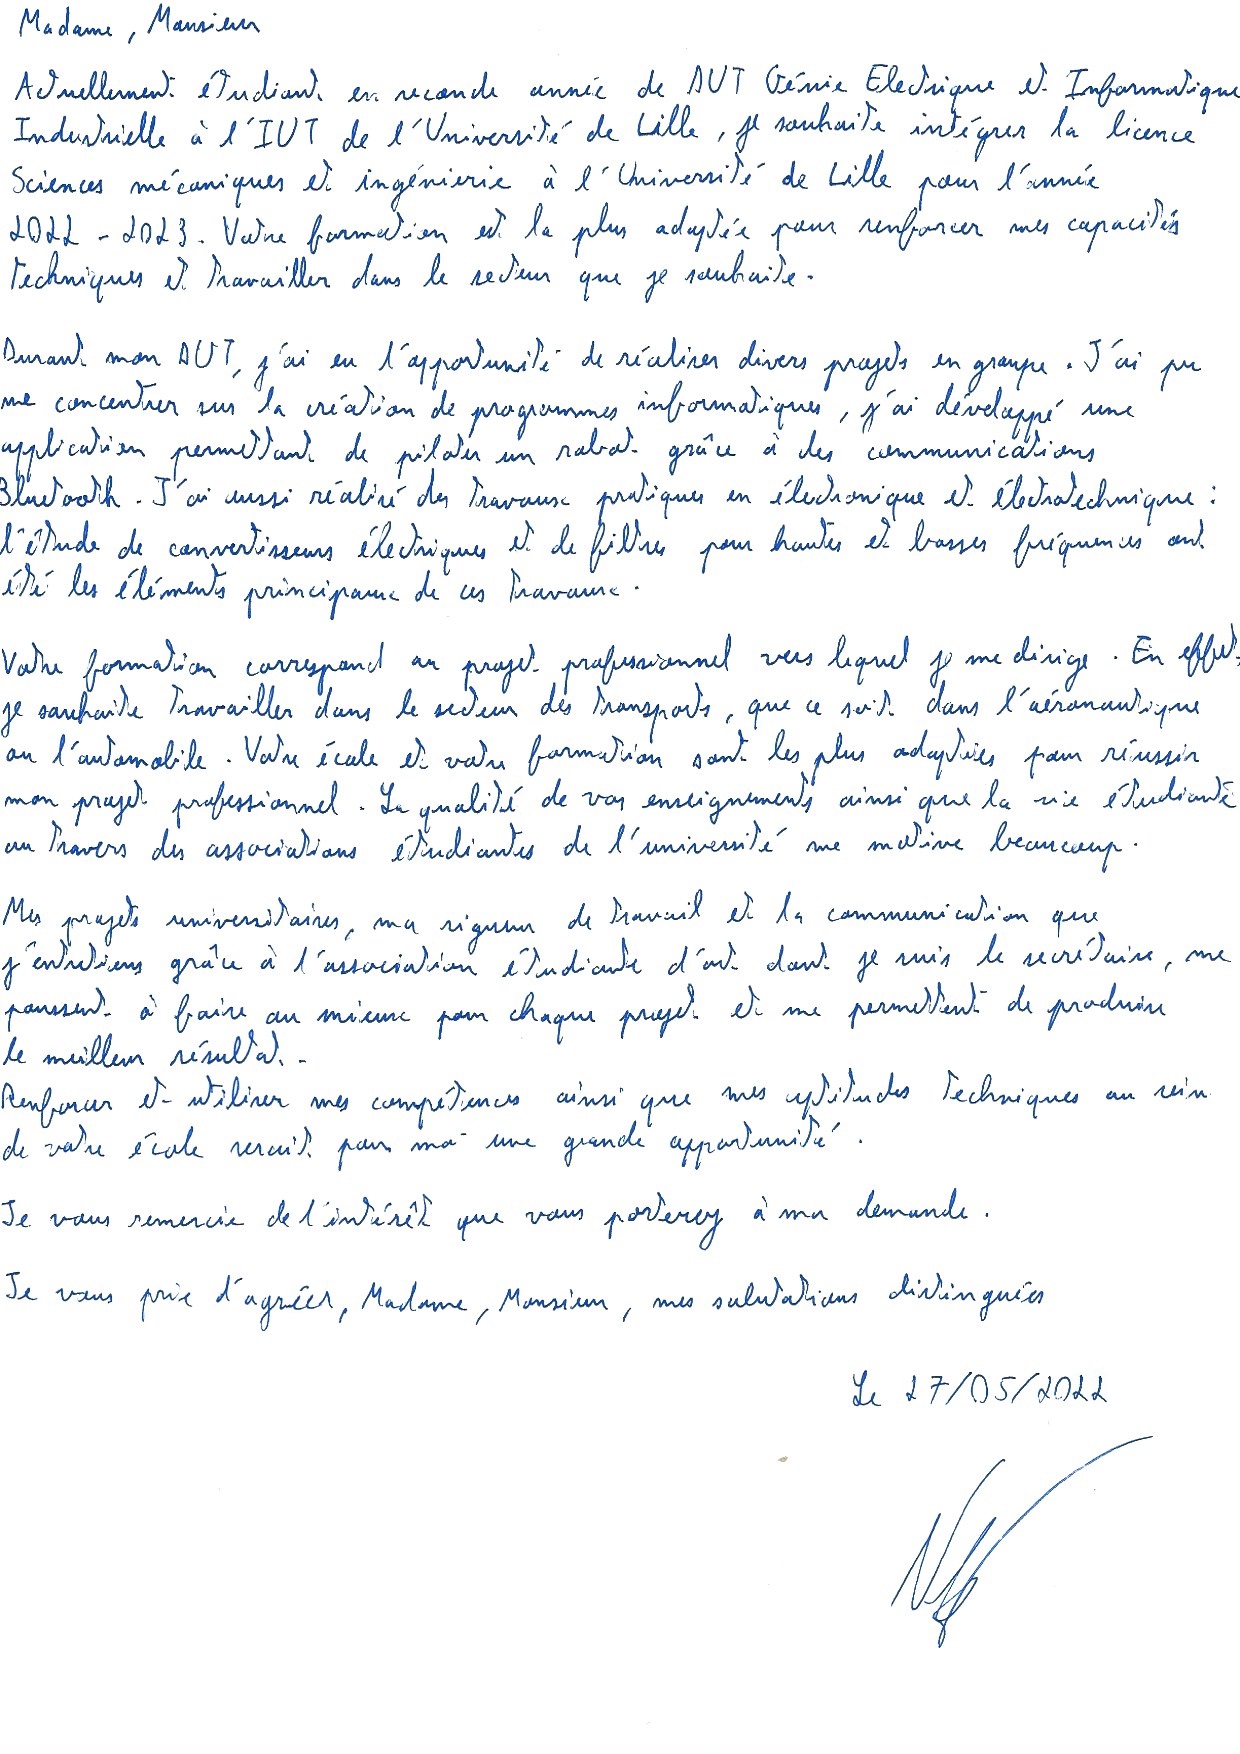 Madame, Monsieur
Actuellement étudiant en seconde année de DUT Génie Electrique et Informatique
Industrielle à l'IUT de l'Université de Lille, je souhaite intégrer la licence
Sciences mécaniques et ingénierie à l'Université de Lille pour l'année
2022 - 2023. Votre formation est la plus adaptée pour renforcer mes capacités
techniques et travailler dans le secteur que je souhaite.
Durant mon DUT, j'ai eu l'opportunité de réaliser divers projets en groupe. J'ai pu
me concentrer sur la création de programmes informatiques, j'ai développé une
application permettant de piloter un robot grâce à des communications
Bluetooth. J'ai aussi réalisé des travaux pratiques en électronique et électrotechnique :
l'étude de convertisseurs électriques et de filtres pour hautes et basses fréquences ont
été les éléments principaux de ces travaux.
Votre formation correspond au projet professionnel vers lequel je me dirige. En effet,
je souhaite travailler dans le secteur des transports, que ce soit dans l'aéronautique
ou l'automobile. Votre école et votre formation sont les plus adaptées pour réussir
mon projet professionnel. La qualité de vos enseignements ainsi que la vie étudiante
au travers des associations étudiantes de l'université me motive beaucoup.
Mes projets universitaires, ma rigueur de travail et la communication que
j'entretiens grâce à l'association étudiante d'art dont je suis le secrétaire, me
poussent à faire au mieux pour chaque projet et me permettent de produire
le meilleur résultat.
Renforcer et utiliser mes compétences ainsi que mes aptitudes techniques au sein
de votre école serait pour moi une grande opportunité.
Je vous remercie de l'intérêt que vous porterez à ma demande.
Je vous prie d'agréer, Madame, Monsieur, mes salutations distinguées
Le 27/05/2022